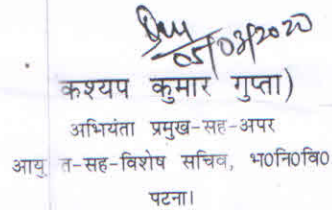 05/03/2020
कश्यप कुमार गुप्ता)
अभियंता प्रमुख-सह-अपर
आयु त-सह-विशेष सचिव, भ०नि०वि०
पटना।